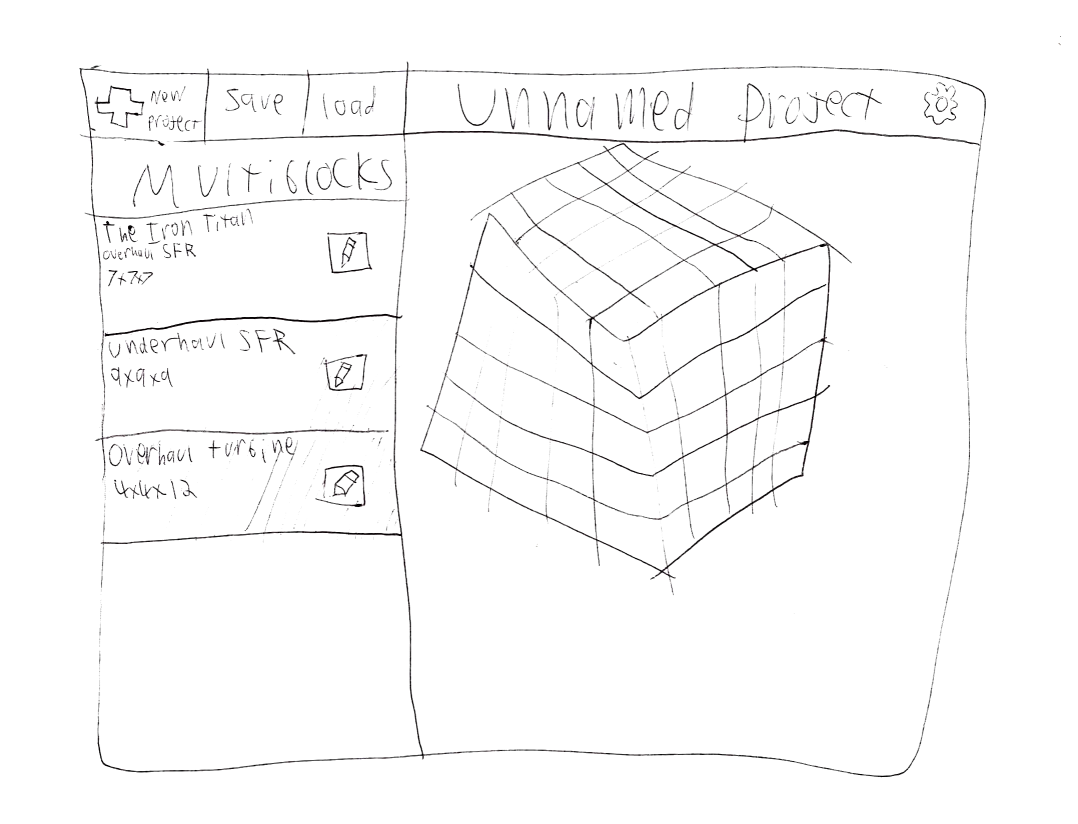 New
project
save
load
Unnamed project
Multiblocks
The Iron Titan
overhaul SFR
7x7x7
underhaul SFR
9x9x9
overhaul turbine
4x4x12